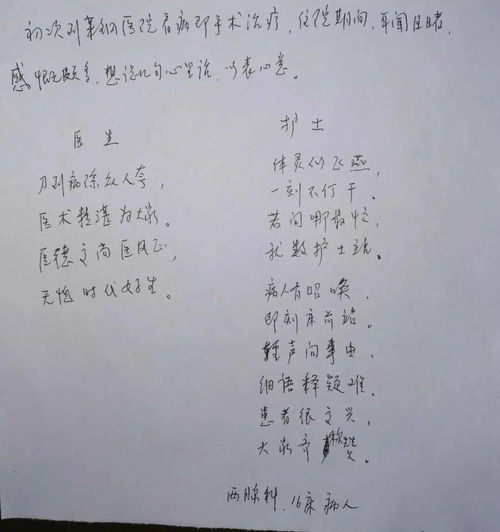 初次到莱钢医院看病即手术治疗,住院期间,耳闻目睹,
感慨颇多,想说几句心里话,以表心意。
医生
刀到病除众人夸,
医术精湛为大家。
医德高尚医风正,
无愧时代好医生。
护士
体灵似飞燕,
一刻不停干。
若问哪最忙,
就数护士站。
病人有召唤,
即刻床前站。
轻声问事由,
细语释疑难。
患者很高兴,
大家齐称赞。
两腺科,16床病人